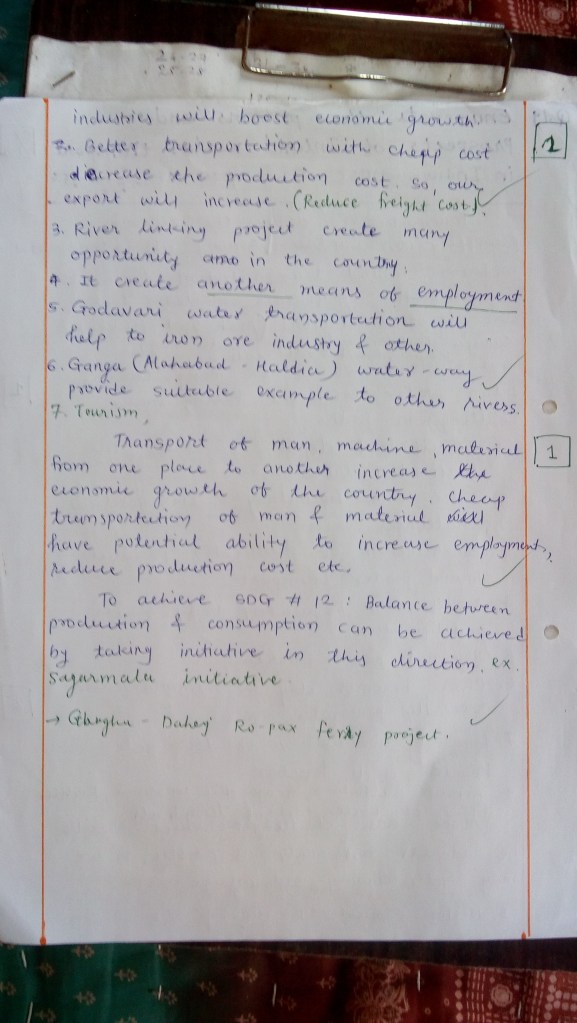 24-29
25-28
industries will boost economic growth
2. Better transportation with cheap cost
decrease the production cost. so, our
export will increase. (Reduce freight cost).
3. River linking project create many
opportunity amo in the country.
4. It create another means of employment.
5. Godavari water transportation will
help to iron ore industry & other.
6. Ganga (Alahabad - Haldia) water-way
provide suitable example to other rivers.
7. Tourism,
Transport of man, machine, material
1
from one place to another increase the
economic growth of the country. Cheap
transportation of man & material will
have potential ability to increase employment,
reduce production cost etc.
To achieve SDG # 12: Balance between
production & consumption can be achieved
by taking initiative in this direction. ex.
Sagarmala initiative.
→ Ghogha - Dahej Ro-pax ferry project.